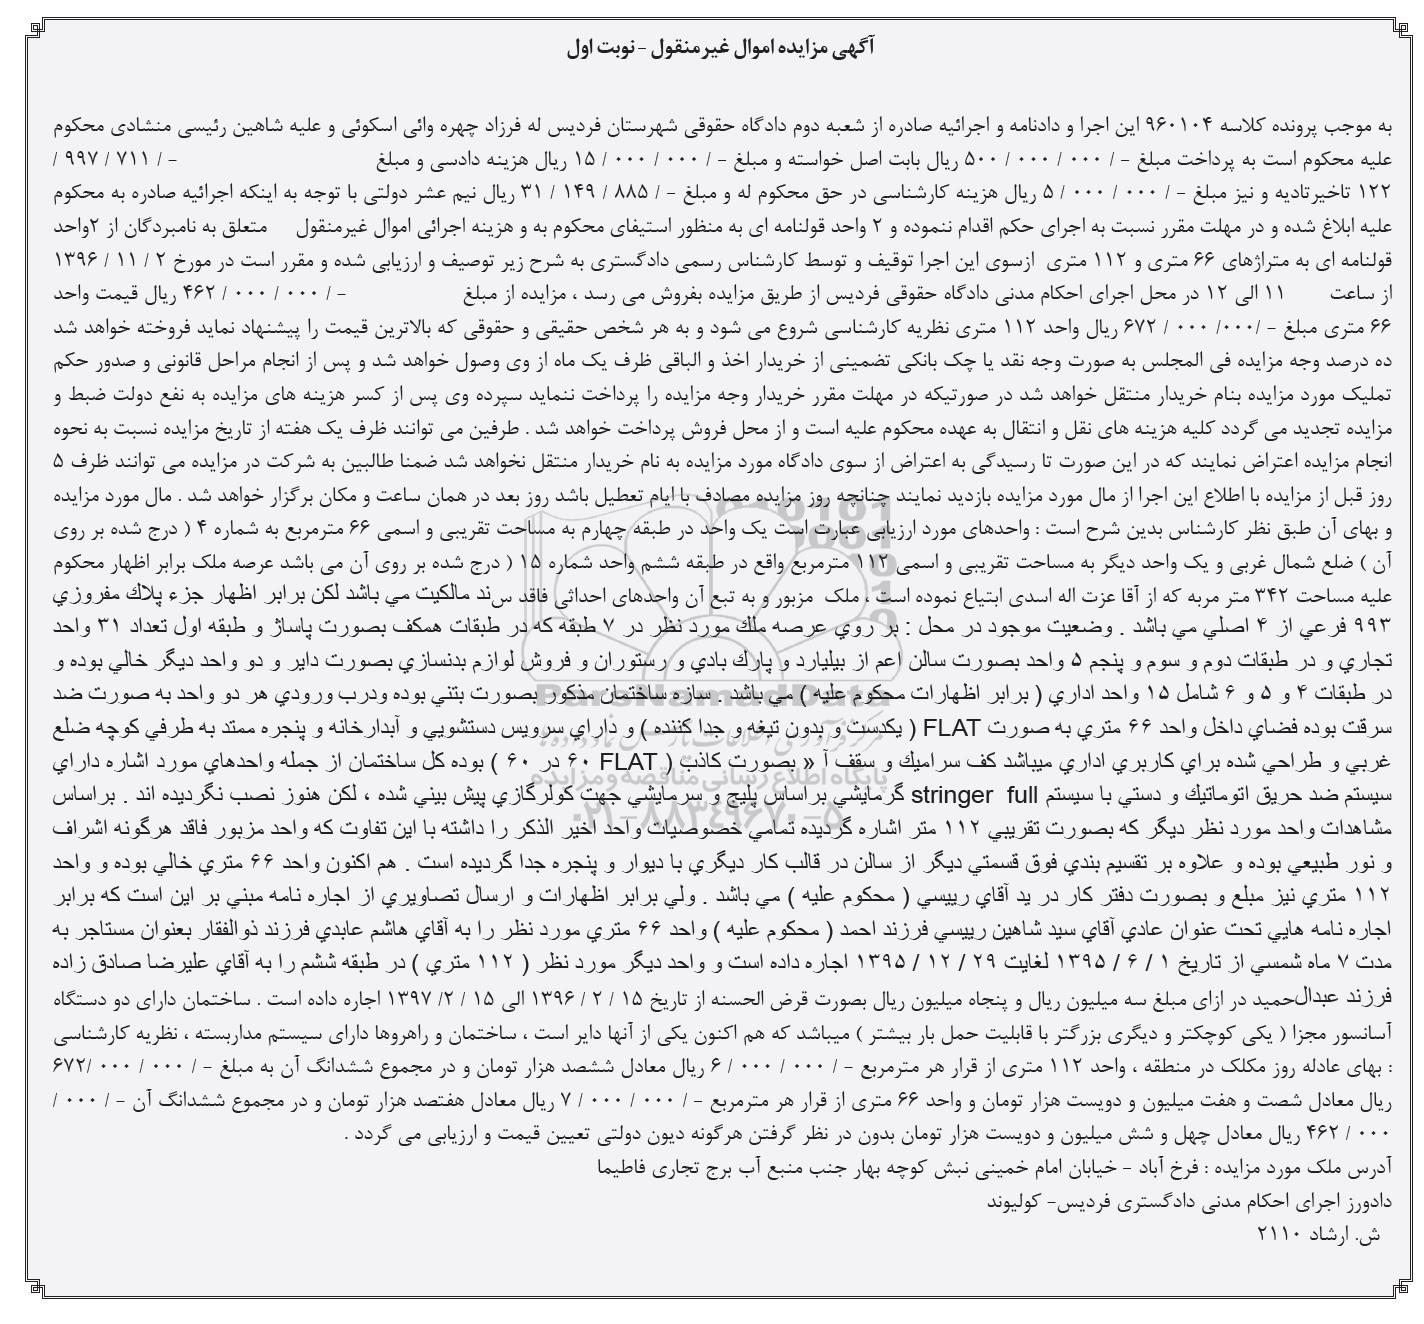 آگهی مزایده اموال غیرمنقول - نوبت اول
به موجب پرونده کلاسه ۹۶۰۱۰۴ این اجرا و دادنامه و اجرائیه صادره از شعبه دوم دادگاه حقوقی شهرستان فردیس له فرزاد چهره وائی اسکوئی و علیه شاهین رئیسی منشادی محکوم
علیه محکوم است به پرداخت مبلغ - / ۰۰۰ / ۰۰۰ / ۵۰۰ ریال بابت اصل خواسته و مبلغ - / ۰۰۰ / ۰۰۰ / ۱۵ ریال هزینه دادسی و مبلغ - / ۷۱۱ / ۹۹۷ /
۱۲۲ تاخیرتادیه و نیز مبلغ - / ۰۰۰ / ۰۰۰ / ۵ ریال هزینه کارشناسی در حق محکوم له و مبلغ - / ۸۸۵ / ۱۴۹ / ۳۱ ریال نیم عشر دولتی با توجه به اینکه اجرائیه صادره به محکوم
علیه ابلاغ شده و در مهلت مقرر نسبت به اجرای حکم اقدام ننموده و ۲ واحد قولنامه ای به منظور استیفای محکوم به و هزینه اجرائی اموال غیرمنقول متعلق به نامبردگان از ۲واحد
قولنامه ای به متراژهای ۶۶ متری و ۱۱۲ متری ازسوی این اجرا توقیف و توسط کارشناس رسمی دادگستری به شرح زیر توصیف و ارزیابی شده و مقرر است در مورخ ۲ / ۱۱ / ۱۳۹۶
از ساعت ۱۱ الی ۱۲ در محل اجرای احکام مدنی دادگاه حقوقی فردیس از طریق مزایده بفروش می رسد ، مزایده از مبلغ - / ۰۰۰ / ۰۰۰ / ۴۶۲ ریال قیمت واحد
۶۶ متری مبلغ - /۰۰۰/ ۰۰۰ / ۶۷۲ ریال واحد ۱۱۲ متری نظریه کارشناسی شروع می شود و به هر شخص حقیقی و حقوقی که بالاترین قیمت را پیشنهاد نماید فروخته خواهد شد
ده درصد وجه مزایده فی المجلس به صورت وجه نقد یا چک بانکی تضمینی از خریدار اخذ و الباقی ظرف یک ماه از وی وصول خواهد شد و پس از انجام مراحل قانونی و صدور حکم
تملیک مورد مزایده بنام خریدار منتقل خواهد شد در صورتیکه در مهلت مقرر خریدار وجه مزایده را پرداخت ننماید سپرده وی پس از کسر هزینه های مزایده به نفع دولت ضبط و
مزایده تجدید می گردد کلیه هزینه های نقل و انتقال به عهده محکوم علیه است و از محل فروش پرداخت خواهد شد . طرفین می توانند ظرف یک هفته از تاریخ مزایده نسبت به نحوه
انجام مزایده اعتراض نمایند که در این صورت تا رسیدگی به اعتراض از سوی دادگاه مورد مزایده به نام خریدار منتقل نخواهد شد ضمنا طالبین به شرکت در مزایده می توانند ظرف ۵
روز قبل از مزایده با اطلاع این اجرا از مال مورد مزایده بازدید نمایند چنانچه روز مزایده مصادف با ایام تعطیل باشد روز بعد در همان ساعت و مکان برگزار خواهد شد . مال مورد مزایده
و بهای آن طبق نظر کارشناس بدین شرح است : واحدهای مورد ارزیابی عبارت است یک واحد در طبقه چهارم به مساحت تقریبی و اسمی ۶۶ مترمربع به شماره ۴ ( درج شده بر روی
آن ) ضلع شمال غربی و یک واحد دیگر به مساحت تقریبی و اسمی ۱۱۲ مترمربع واقع در طبقه ششم واحد شماره ۱۵ ( درج شده بر روی آن می باشد عرصه ملک برابر اظهار محکوم
علیه مساحت ۳۴۲ متر مربه که از آقا عزت اله اسدی ابتیاع نموده است ، ملک مزبور و به تبع آن واحدهای احداثی فاقد سند مالكيت مي باشد لكن برابر اظهار جزء پلاك مفروزي
۹۹۳ فرعي از ۴ اصلي مي باشد . وضعيت موجود در محل : بر روي عرصه ملك مورد نظر در ۷ طبقه كه در طبقات همكف بصورت پاساژ و طبقه اول تعداد ۳۱ واحد
تجاري و در طبقات دوم و سوم و پنجم ۵ واحد بصورت سالن اعم از بيليارد و پارك بادي و رستوران و فروش لوازم بدنسازي بصورت داير و دو واحد ديگر خالي بوده و
در طبقات ۴ و ۵ و ۶ شامل ۱۵ واحد اداري ( برابر اظهارات محكوم عليه ) مي باشد . سازه ساختمان مذكور بصورت بتني بوده ودرب ورودي هر دو واحد به صورت ضد
سرقت بوده فضاي داخل واحد ۶۶ متري به صورت FLAT ( يكدست و بدون تيغه و جدا كننده ) و داراي سرويس دستشويي و آبدارخانه و پنجره ممتد به طرفي كوچه ضلع
غربي و طراحي شده براي كاربري اداري ميباشد كف سراميك و سقف آ « بصورت كاذب ( FLAT ۶۰ در ۶۰ ) بوده كل ساختمان از جمله واحدهاي مورد اشاره داراي
سيستم ضد حريق اتوماتيك و دستي با سيستم stringer full گرمايشي براساس پليج و سرمايشي جهت كولرگازي پيش بيني شده ، لكن هنوز نصب نگرديده اند . براساس
مشاهدات واحد مورد نظر ديگر كه بصورت تقريبي ۱۱۲ متر اشاره گرديده تمامي خصوصيات واحد اخير الذكر را داشته با اين تفاوت كه واحد مزبور فاقد هرگونه اشراف
و نور طبيعي بوده و علاوه بر تقسيم بندي فوق قسمتي ديگر از سالن در قالب كار ديگري با ديوار و پنجره جدا گرديده است . هم اكنون واحد ۶۶ متري خالي بوده و واحد
۱۱۲ متري نيز مبلغ و بصورت دفتر كار در يد آقاي رييسي ( محكوم عليه ) مي باشد . ولي برابر اظهارات و ارسال تصاويري از اجاره نامه مبني بر اين است كه برابر
اجاره نامه هايي تحت عنوان عادي آقاي سيد شاهين رييسي فرزند احمد ( محكوم عليه ) واحد ۶۶ متري مورد نظر را به آقاي هاشم عابدي فرزند ذوالفقار بعنوان مستاجر به
مدت ۷ ماه شمسي از تاريخ ۱ / ۶ / ۱۳۹۵ لغايت ۲۹ / ۱۲ / ۱۳۹۵ اجاره داده است و واحد ديگر مورد نظر ( ۱۱۲ متري ) در طبقه ششم را به آقاي عليرضا صادق زاده
فرزند عبدالحمید در ازای مبلغ سه میلیون ریال و پنجاه میلیون ریال بصورت قرض الحسنه از تاریخ ۱۵ / ۲ / ۱۳۹۶ الی ۱۵ / ۲/ ۱۳۹۷ اجاره داده است . ساختمان دارای دو دستگاه
آسانسور مجزا ( یکی کوچکتر و دیگری بزرگتر با قابلیت حمل بار بیشتر ) میباشد که هم اکنون یکی از آنها دایر است ، ساختمان و راهروها دارای سیستم مداربسته ، نظریه کارشناسی
: بهای عادله روز مکلک در منطقه ، واحد ۱۱۲ متری از قرار هر مترمربع - / ۰۰۰ / ۰۰۰ / ۶ ریال معادل ششصد هزار تومان و در مجموع ششدانگ آن به مبلغ - / ۰۰۰ / ۰۰۰ /۶۷۲
ریال معادل شصت و هفت میلیون و دویست هزار تومان و واحد ۶۶ متری از قرار هر مترمربع - / ۰۰۰ / ۰۰۰ / ۷ ریال معادل هفتصد هزار تومان و در مجموع ششدانگ آن - / ۰۰۰ /
۰۰۰ / ۴۶۲ ریال معادل چهل و شش میلیون و دویست هزار تومان بدون در نظر گرفتن هرگونه دیون دولتی تعیین قیمت و ارزیابی می گردد .
آدرس ملک مورد مزایده : فرخ آباد - خیابان امام خمینی نبش کوچه بهار جنب منبع آب برج تجاری فاطیما
دادورز اجرای احکام مدنی دادگستری فردیس- کولیوند
ش. ارشاد ۲۱۱۰
ParsNamadData
پایگاه اطلاع رسانی مناقصه و مزایده
۰۲۱-۸۸۳۴۹۶۷۰-۵